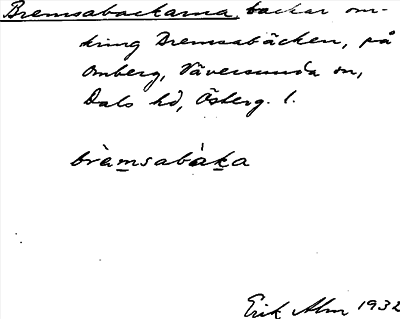 Bremsabackarna, backar om-
kring Bremsabäcken, på
Omberg, Väversunda sn,
Dals hd, Österg. l.
bràmsabàka
Erik Alm 1932